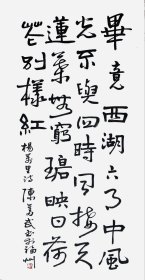 畢竟西湖六月中風
光不與四時同接天
蓮葉無窮碧映日荷
花別樣紅
楊萬里詩 陳